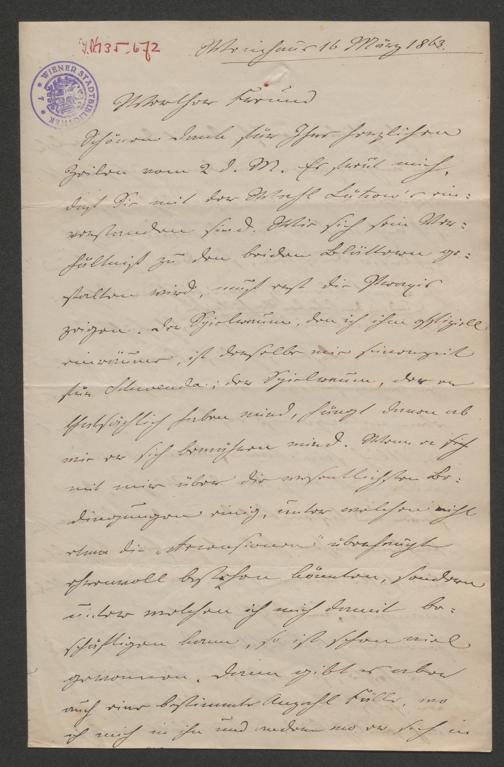 I.N. 135.672
WIENER STADTBIBLIOTHEK
Weinhaus 16 März 1863.
Werther Freund
Schönen Dank für Ihre herzlichen
Zeilen vom 2 d. M. Es freut mich,
daß Sie mit der Wahl Lützow's ein-
verstanden sind. Wie sich sein Ver-
hältniß zu den beiden Blättern ge-
stalten wird, muß erst die Praxis
zeigen. Der Spielraum, den ich ihm offiziell
einräume, ist derselbe wie seinerzeit
für Schwenda; der Spielraum, den er
thatsächlich haben wird, hängt davon ab
wie er sich benehmen wird. Wenn er sich
mit mir über die wesentlichsten Be-
dingungen einig, unter welchen nicht
etwa die "Recensionen" überhaupt
ehrenvoll bestehen könnten, sondern
unter welchen ich mich damit be-
schäftigen kann, so ist schon viel
gewonnen. Dann gibt es aber
auch eine bestimmte Anzahl Fälle, wo
ich mich in ihn und andere wo er sich in